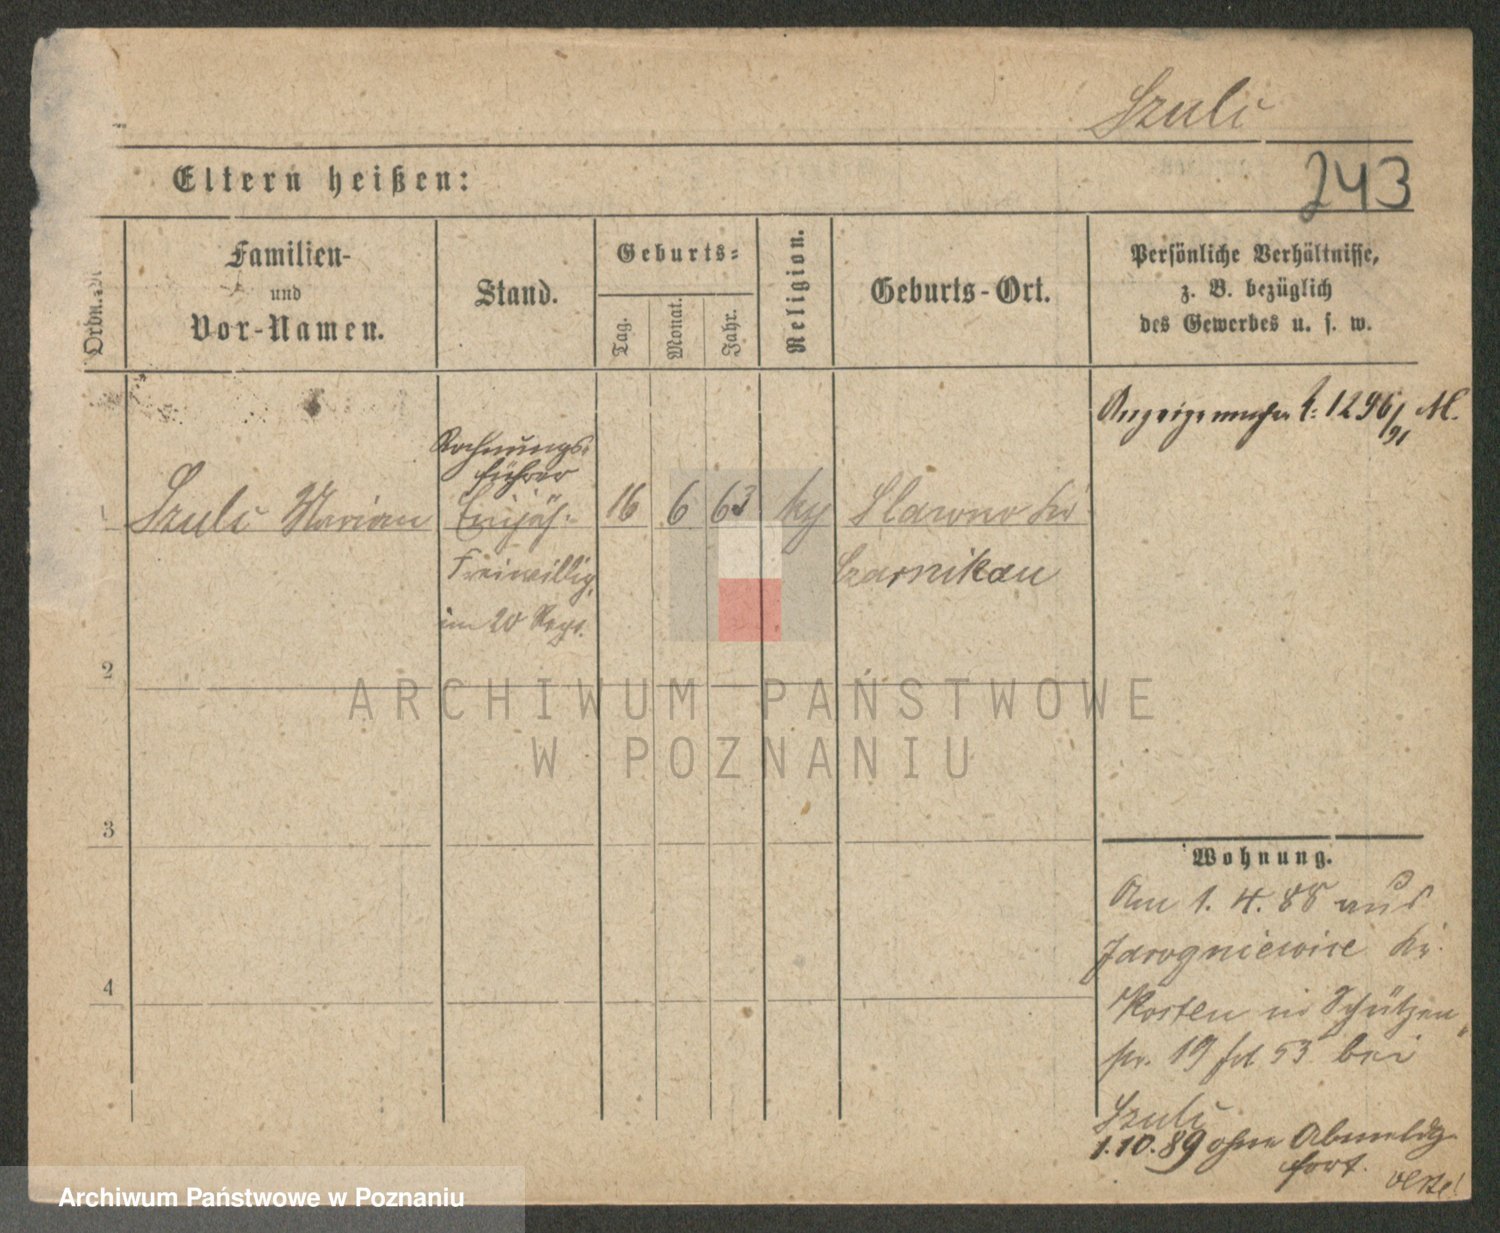 Szulc
Eltern heißen:
243
Ordn. №
Familien-
und
Vor-Namen.
Stand.
Geburts-
Tag.
Monat.
Jahr.
Religion.
Geburts-Ort.
Persönliche Verhältnisse,
z. B. bezüglich
des Gewerbes u. s. w.
1296/91 M.
Rechnungs-
führer
1 Szulc Marian Einjäh- 16 6 63 Slawno Kr
Freiwillig
Czarnikau
im 20 Regt.
2
ARCHIWUM PAŃSTWOWE
W POZNANIU
3
4
Wohnung.
Am 1. 4. 88 aus
Jarogniewice Kr.
Kosten in Schützen
str. 19 bei
Szulc
1.10.89 ohne Abmeldg.
fort.
Archiwum Państwowe w Poznaniu